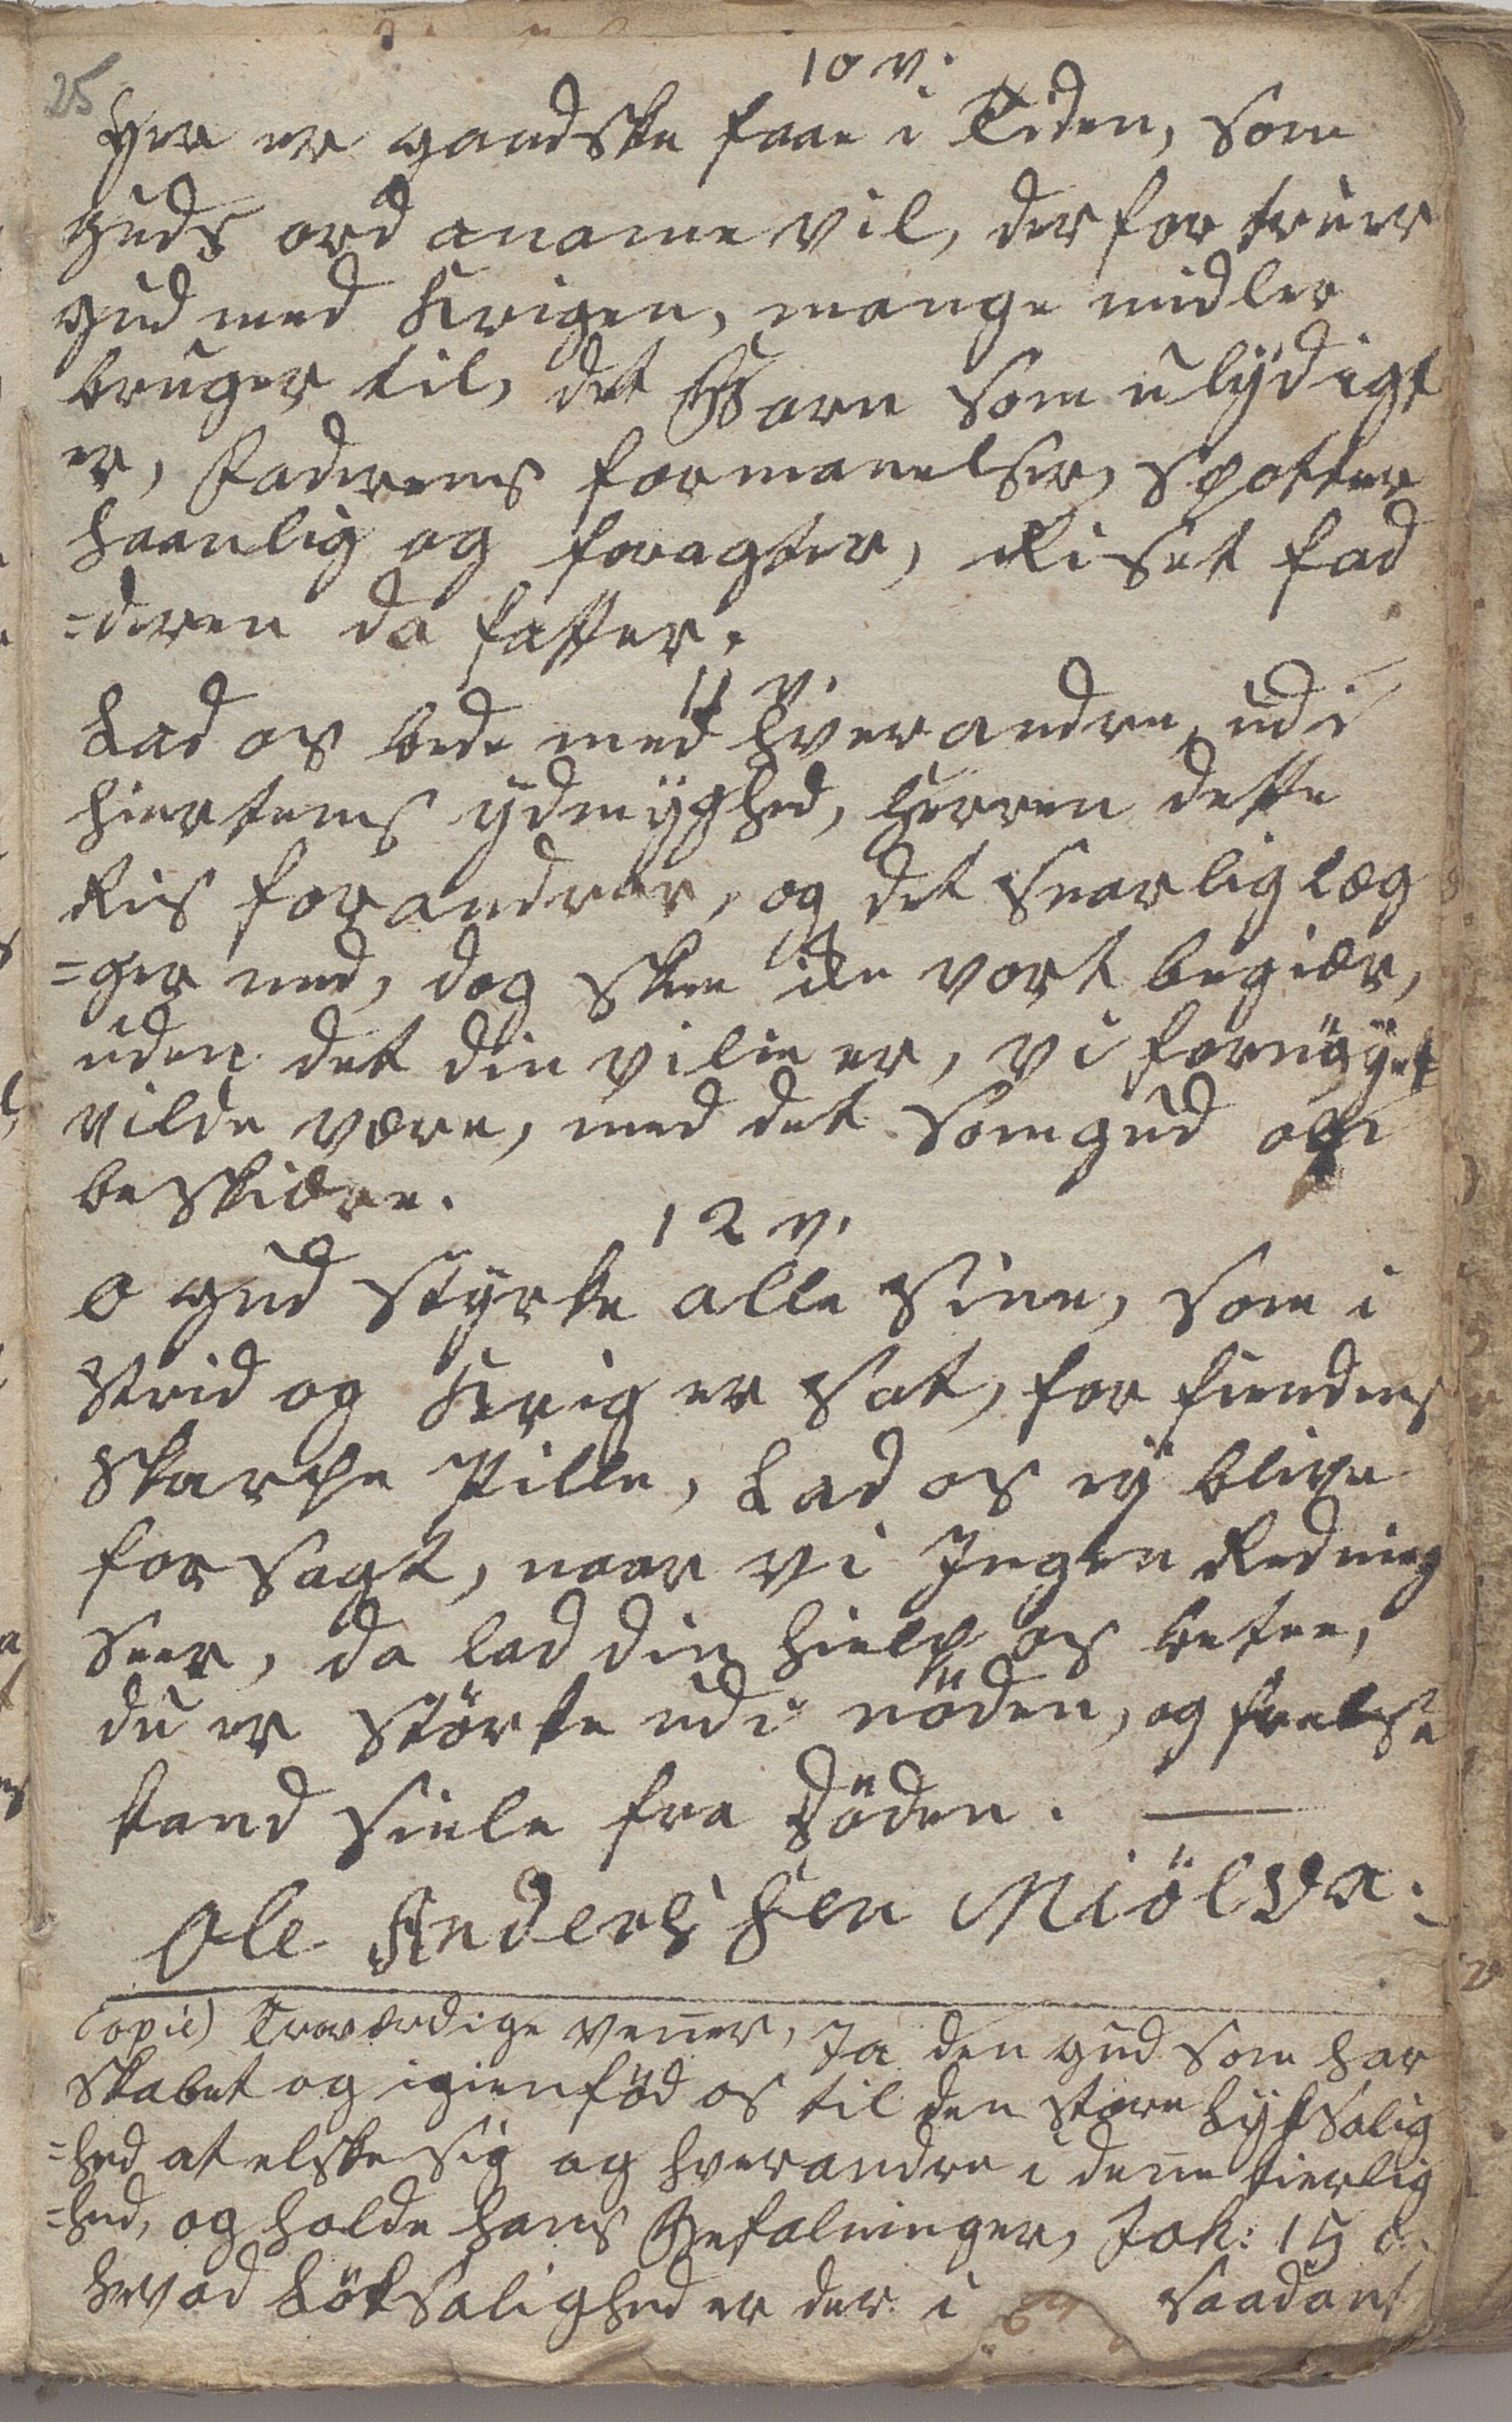 25
10 v:
Her er gandske faae i Tiden, som
Guds ord aname vil, der for truer
gud med Krigen, mange midler
bruger til, det Barn som ulÿdigt
er, Faderens formanelser, spotter
haanlig og foragter, Riset fad
=deren da fatter.
11 v.
Lad os bede med hverandre, udi
hiertens ÿdmÿghed, Herren dette
Riis forandrer, og det snarlig læg
=ger ned, dog skee ikke vort begiær,
uden det din vilie er, vi fornøÿet
vilde være, med det som gud os
beskiære.
12 v.
O gud stÿrke alle Sine, som i
strid og Krig er sat, for fiendens
skarpe Pille, Lad os eÿ blive
forsagt, naar vi Ingen Redning
seer, da lad din hielp os betee,
du er störke udi nöden, og frelse
kand siele fra Döden.
Ole Anders Sen Miölva.
Copie) Troværdige venner, Ja den gud som har
skabet og igienföd os til den store Lÿksalig
=hed at elske sig og hverandre i denne kierlig
=hed, og holde hans Befalninger, Joh: 15 c.
hvad Löksalighed er der i saadant